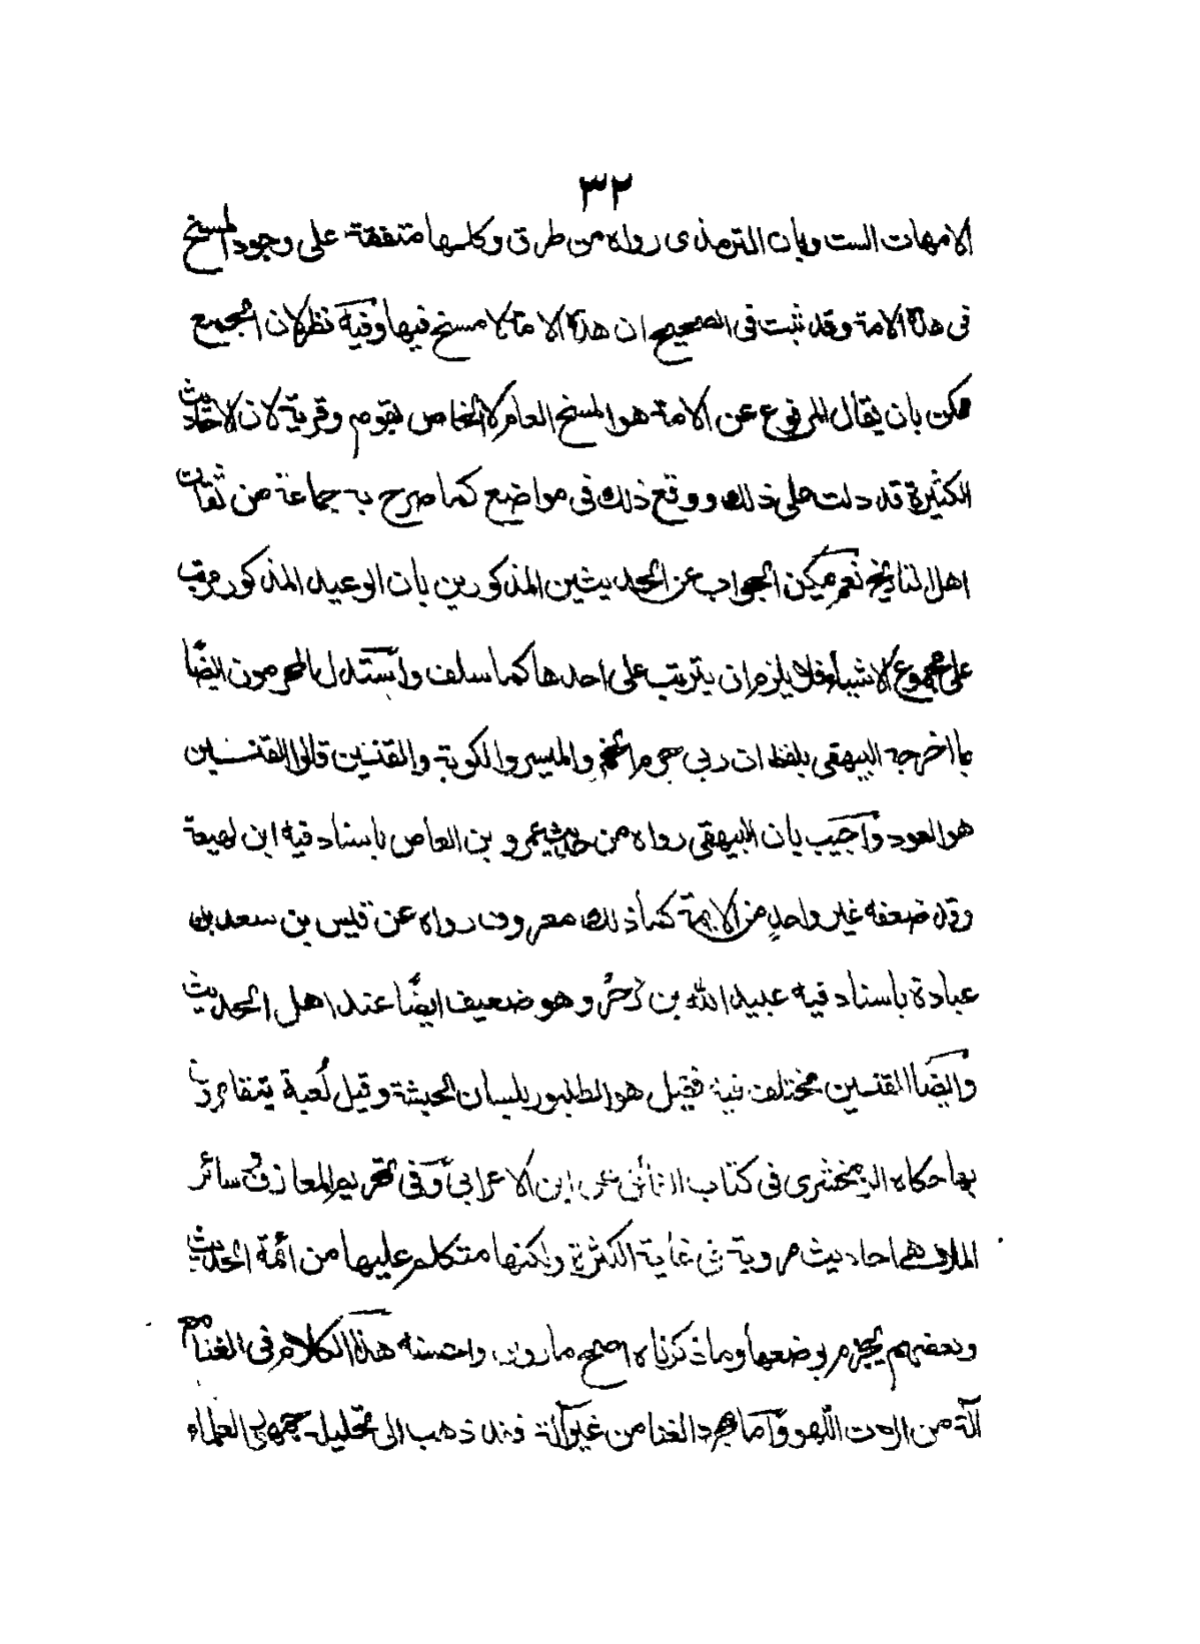 ٣٢
الامهات الست وبان الترمذى رواه من طرق وكلها متفقة على وجود المسخ
فى هذه الامة وقد ثبت فى الصحيح ان هذه الامة لا مسخ فيها وفيه نظر لان الجميع
ممكن بان يقال المرفوع عن الامة هو المسخ العام لا الخاص بقوم وقرية لان الاحاديث
الكثيرة قد دلت على ذلك ووقع ذلك فى مواضع كما صرح به جماعة من ثقات
اهل التاريخ نعم يمكن الجواب عن الحديثين المذكورين بان الوعيد المذكور مرتب
على مجموع الاشياء فلا يلزم ان يترتب على احدها كما سلف واستدل المحرمون ايضًا
بما اخرجه البيهقى بلفظ ان ربى حرم الخمر والميسر والكوبة والقنين قالوا القنين
هو العود واجيب بان البيهقى رواه من حديث عمرو بن العاص باسناد فيه ابن لهيعة
وقد ضعفه غير واحدٍ من الايمة كما ذلك معروف رواه عن قيس بن سعد بن
عبادة باسناد فيه عبيد الله بن زحر وهو ضعيف ايضًا عند اهل الحديث
وايضًا القنين مختلف فيه فقيل هو الطنبور بلسان الحبشة وقيل لُعبة يتقامرون
بها حكاه الزمخشرى فى كتاب الفائق عن ابن الاعرابى وفى تحريم المعازف وسائر
الملاهى احاديث مروية فى غاية الكثرة ولكنها متكلم عليها من ائمة الحديث
وبعضهم يجزم بوضعها وما ذكرناه اصح ما روى واحسنه هذا الكلام فى الغنا مع
آلة من الات اللهو واما مجرد الغنا من غير آلة فقد ذهب الى تحليله جمهور العلماء